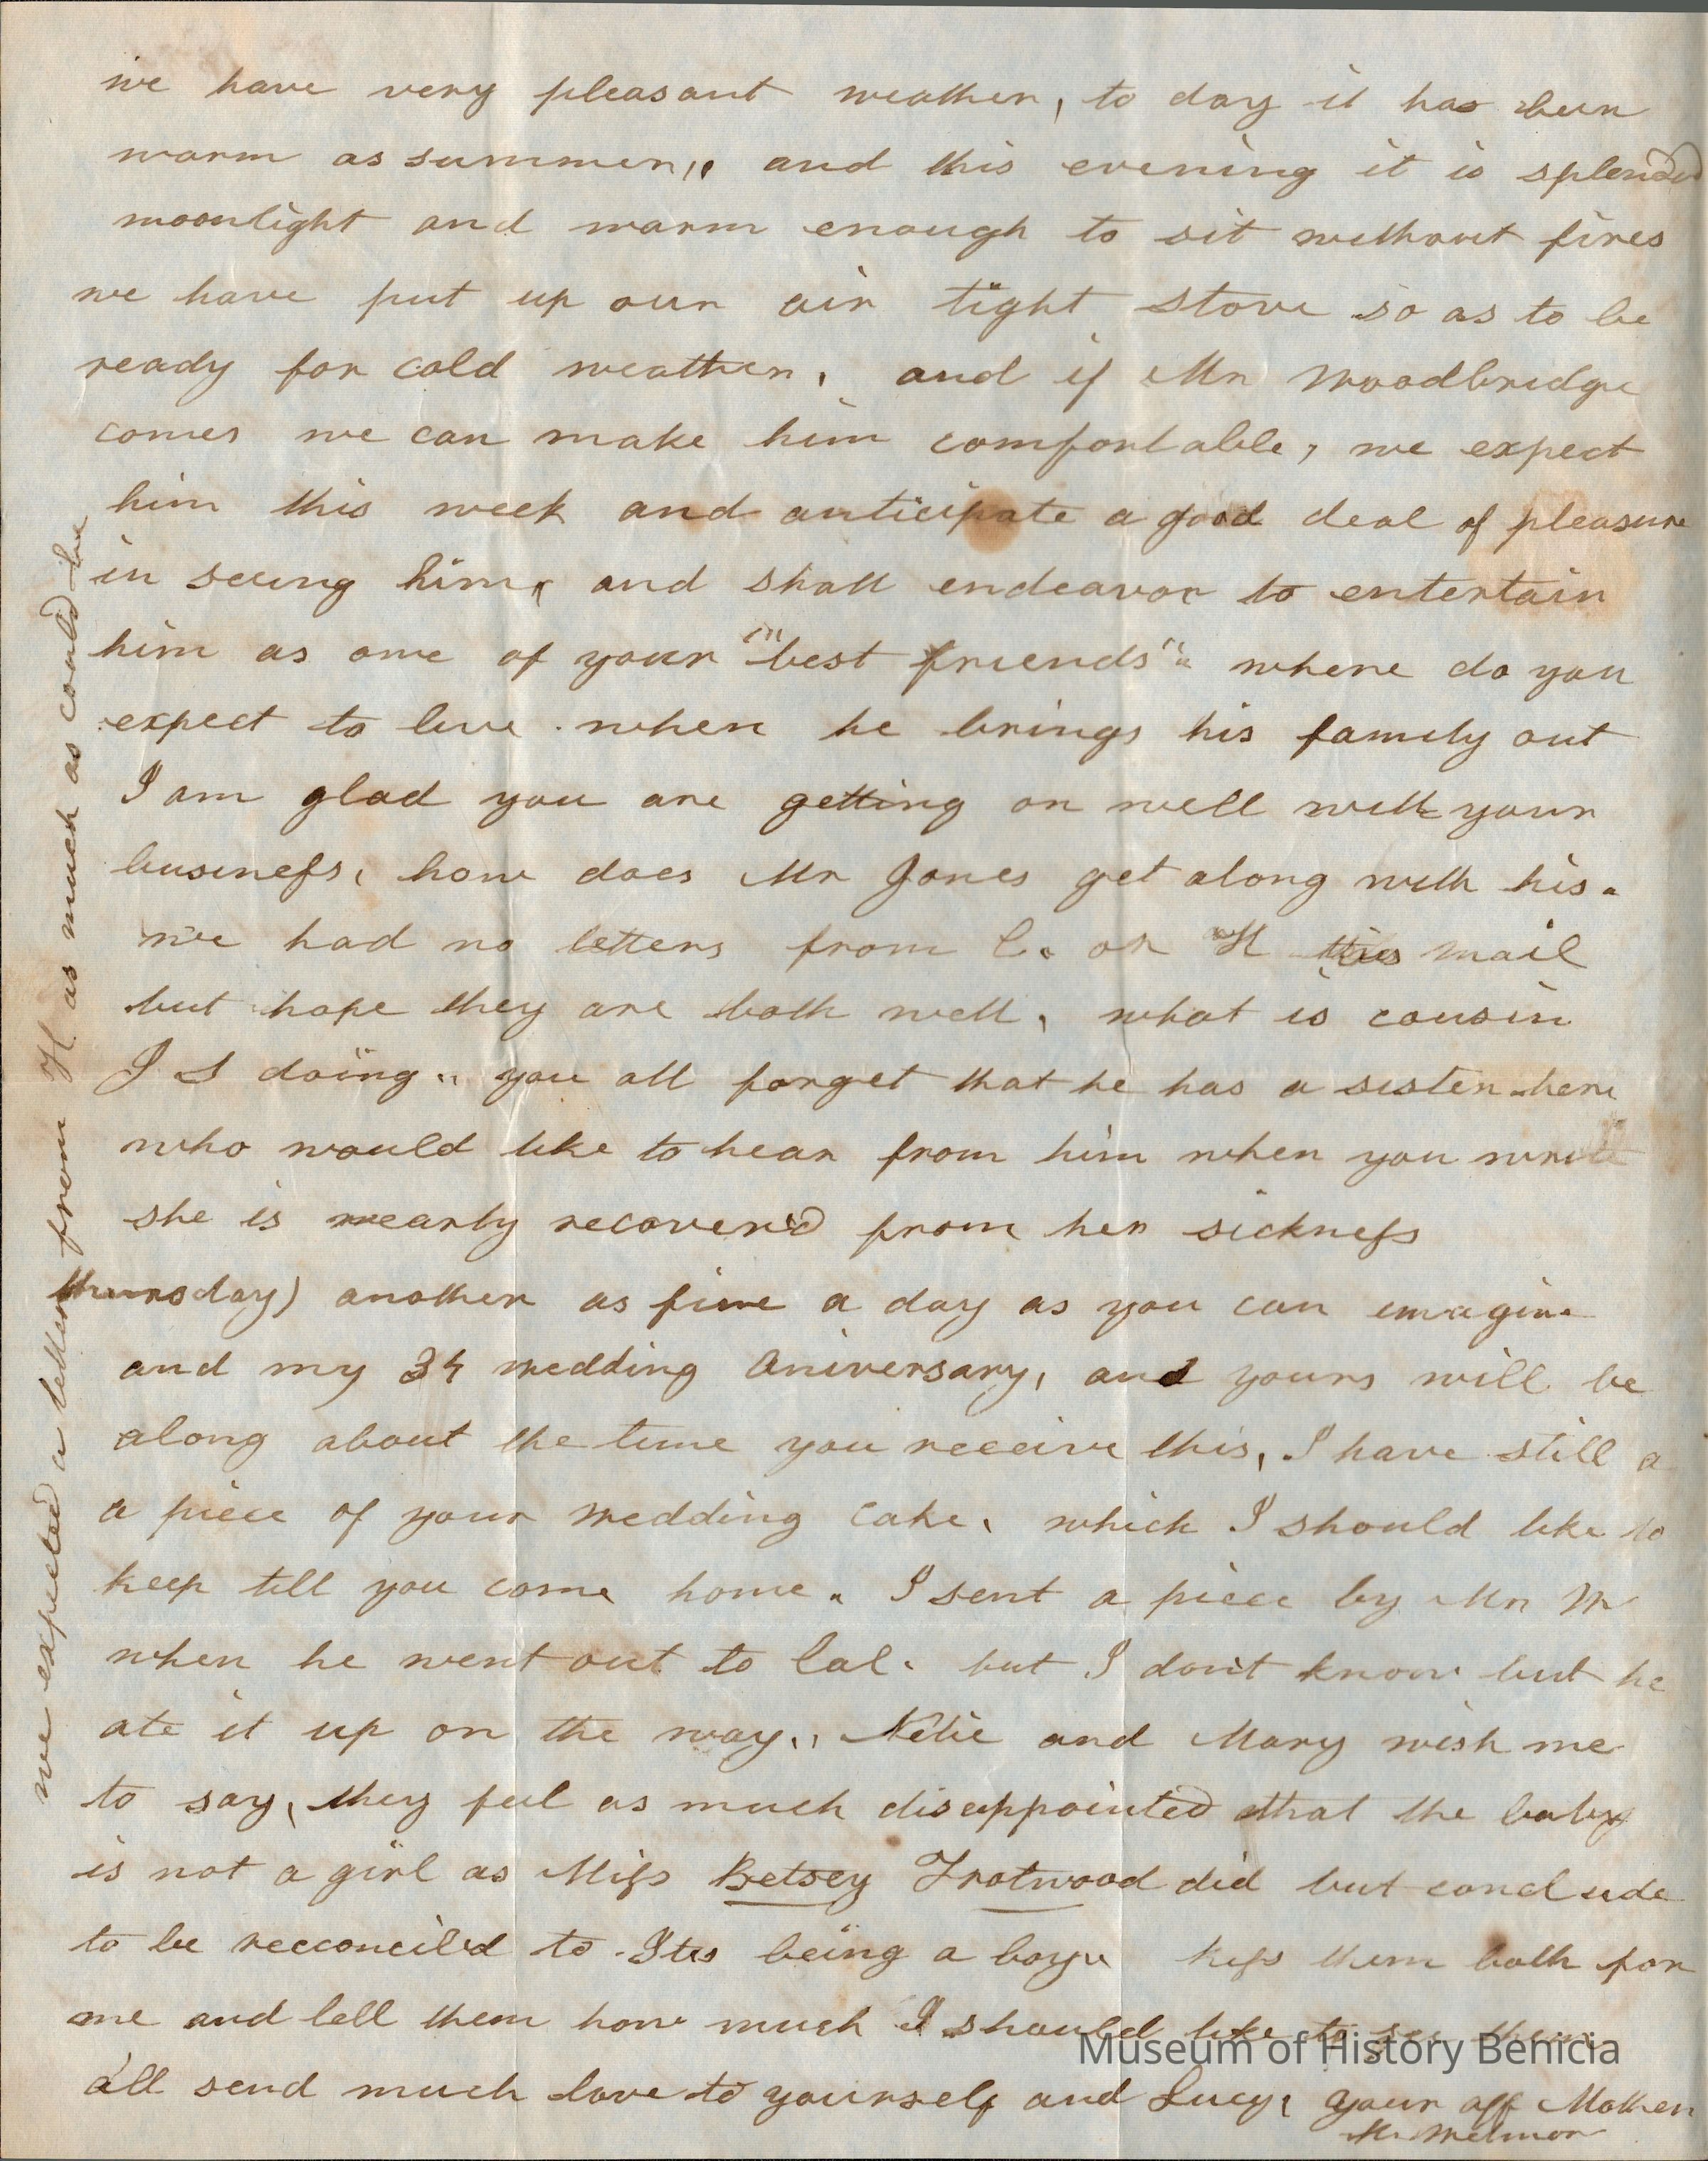 we have very pleasant weather, to day it has been
warm as summer,, and this evening it is splendid
moonlight and warm enough to sit without fires
we have put up our air tight stove so as to be
ready for cold weather, and if Mr Woodbridge
comes we can make him comfortable, we expect
him this week and anticipate a good deal of pleasure
in seeing him, and shall endeavor to entertain
him as one of your "best friends" where do you
expect to live when he brings his family out
I am glad you are getting on well with your
business, how does Mr Jones get along with his.
we had no letters from C. or H this mail
but hope they are both well, what is cousin
J S doing.. you all forget that he has a sister here
who would like to hear from him when you write
she is nearly recover'd from her sickness
thursday) another as fine a day as you can imagine
and my 34 wedding aniversary, and yours will be
along about the time you receive this, I have still a
a piece of your wedding cake, which I should like to
keep till you come home. I sent a piece by Mr W
when he went out to Cal. but I don't know but he
ate it up on the way,, Netie and Mary wish me
to say, they feel as much disappointed that the baby
is not a girl as Miss Betsey Trotwood did but conclude
to be recconcil'd to Its being a boy.. kiss them both for
me and tell them how much I should like to see them
all send much love to yourself and Lucy, your aff Mother
we expected a letter from H. as much as could be
Museum of History Benicia